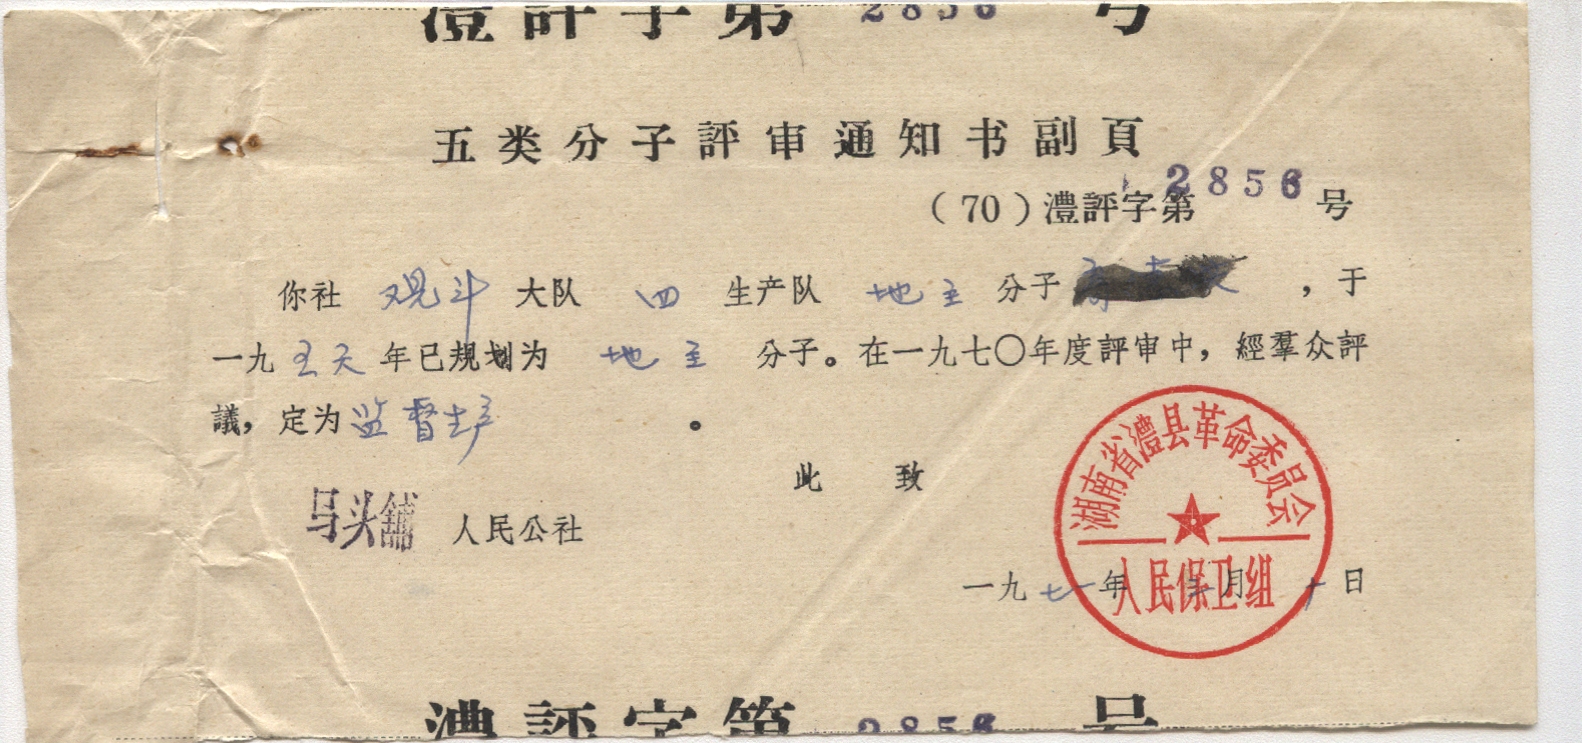 澧評字第 2856 号
五类分子評审通知书副頁
(70)澧評字第 2856 号
你社 观斗 大队 四 生产队 地主 分子 ，于
一九 五 年已规划为 地主 分子。在一九七〇年度評审中，經羣众評
議，定为监督生产。
此 致
马头铺 人民公社
湖南省澧县革命委员会
人民保卫组
一九七一年 三月 十日
澧評字第 2856 号